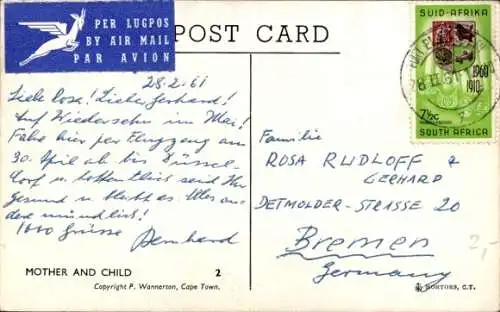 PER LUGPOS
BY AIR MAIL
PAR AVION
POST CARD
SUID-AFRIKA
1960
1910
7½c
SOUTH AFRICA
28.2.61
Liebe Rosa! Lieber Gerhard!
Auf Wiedersehn im Mai!
Fahre hier per Flugzeug am
30. April ab bis Düssel-
dorf u. hoffentlich seid Ihr
gesund u. bleibt es. Alles an-
dere mündlich!
1000 Grüsse Bernhard
Familie
ROSA RUDLOFF &
GERHARD
DETMOLDER-STRASSE 20
Bremen
Germany
2,-
MOTHER AND CHILD 2
Copyright P. Wannerton, Cape Town.
NORTONS, C.T.